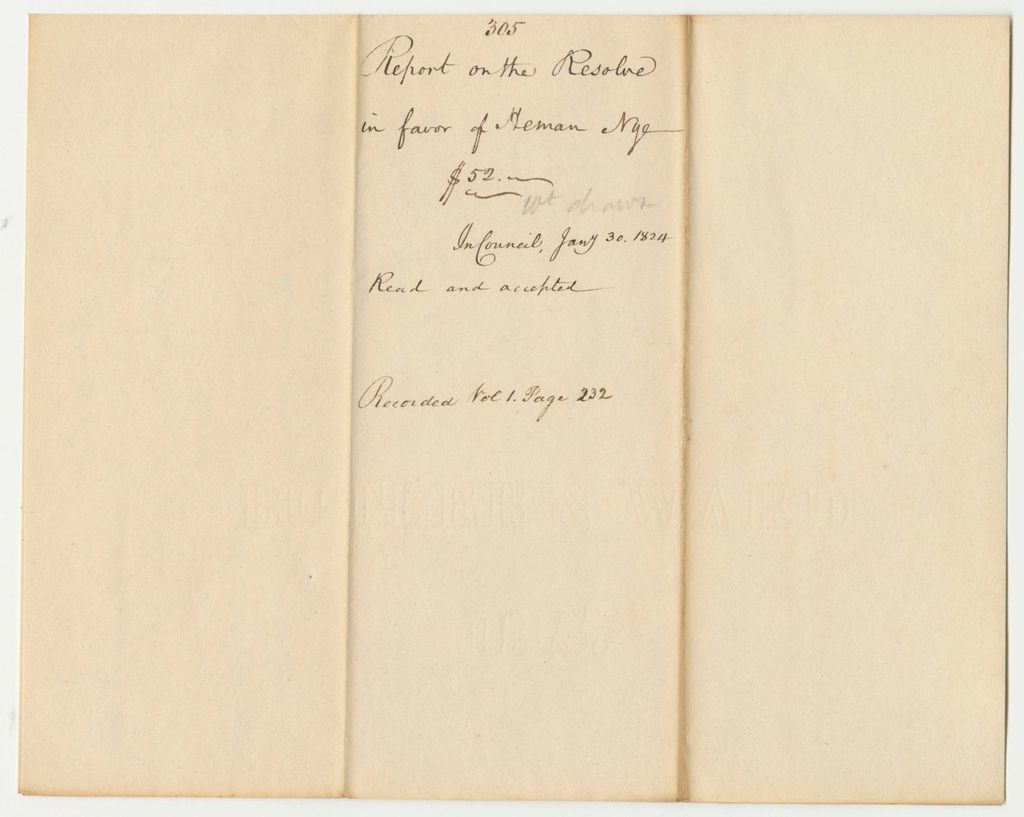 305
Report on the Resolve
in favor of Heman Nye
$52.—
Wt drawn
In Council, Jany 30. 1824
Read and accepted
Recorded Vol 1. Page 232